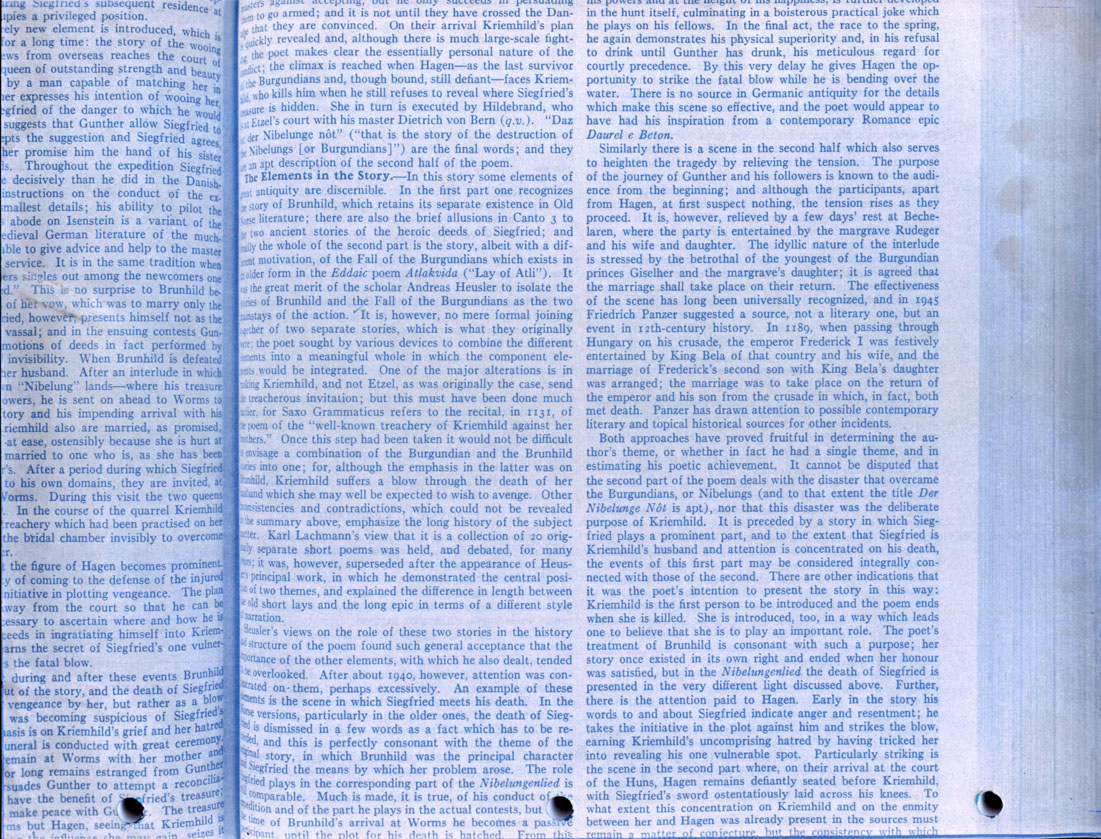 ing Siegfried's subsequent residence at
upies a privileged position.
rely new element is introduced, which is
for a long time: the story of the wooing
ews from overseas reaches the court of
queen of outstanding strength and beauty
by a man capable of matching her in
her expresses his intention of wooing her,
egfried of the danger to which he would
suggests that Gunther allow Siegfried to
epts the suggestion and Siegfried agrees,
her promise him the hand of his sister
ds. Throughout the expedition Siegfried
e decisively than he did in the Danish-
instructions on the conduct of the ex-
smallest details; his ability to pilot the
abode on Isenstein is a variant of the
edieval German literature of the much-
able to give advice and help to the master
service. It is in the same tradition when
ers singles out among the newcomers one
ed." This is no surprise to Brunhild be-
of her vow, which was to marry only the
ried, however, presents himself not as the
vassal; and in the ensuing contests Gun-
motions of deeds in fact performed by
invisibility. When Brunhild is defeated
her husband. After an interlude in which
wn "Nibelung" lands—where his treasure
owers, he is sent on ahead to Worms to
tory and his impending arrival with his
riemhild also are married, as promised;
at ease, ostensibly because she is hurt at
married to one who is, as she has been
r's. After a period during which Siegfried
to his own domains, they are invited, at
Worms. During this visit the two queens
In the course of the quarrel Kriemhild
reachery which had been practised on her
the bridal chamber invisibly to overcome
er.
t the figure of Hagen becomes prominent.
y of coming to the defense of the injured
nitiative in plotting vengeance. The plan
away from the court so that he can be
cessary to ascertain where and how he is
ceeds in ingratiating himself into Kriem-
arns the secret of Siegfried's one vulner-
s the fatal blow.
during and after these events Brunhild
ut of the story, and the death of Siegfried
vengeance by her, but rather as a blow
was becoming suspicious of Siegfried's
asis is on Kriemhild's grief and her hatred
uneral is conducted with great ceremony.
emain at Worms with her mother and
or long remains estranged from Gunther
rsuades Gunther to attempt a reconcilia-
have the benefit of Siegfried's treasure;
make peace with The treasure
ms but Hagen, seeing that Kriemhild is
gain seizes it
against accepting, but he only succeeds in persuading
them to go armed; and it is not until they have crossed the Dan-
that they are convinced. On their arrival Kriemhild's plan
quickly revealed and, although there is much large-scale fight-
the poet makes clear the essentially personal nature of the
conflict; the climax is reached when Hagen—as the last survivor
of the Burgundians and, though bound, still defiant—faces Kriem-
hild, who kills him when he still refuses to reveal where Siegfried's
treasure is hidden. She in turn is executed by Hildebrand, who
at Etzel's court with his master Dietrich von Bern (q.v.). "Daz
der Nibelunge nôt" ("that is the story of the destruction of
the Nibelungs [or Burgundians]") are the final words; and they
are an apt description of the second half of the poem.
The Elements in the Story.—In this story some elements of
great antiquity are discernible. In the first part one recognizes
story of Brunhild, which retains its separate existence in Old
Norse literature; there are also the brief allusions in Canto 3 to
the two ancient stories of the heroic deeds of Siegfried; and
finally the whole of the second part is the story, albeit with a dif-
ferent motivation, of the Fall of the Burgundians which exists in
older form in the Eddaic poem Atlakvida ("Lay of Atli"). It
was the great merit of the scholar Andreas Heusler to isolate the
stories of Brunhild and the Fall of the Burgundians as the two
mainstays of the action. It is, however, no mere formal joining
together of two separate stories, which is what they originally
were; the poet sought by various devices to combine the different
elements into a meaningful whole in which the component ele-
ments would be integrated. One of the major alterations is in
making Kriemhild, and not Etzel, as was originally the case, send
the treacherous invitation; but this must have been done much
earlier, for Saxo Grammaticus refers to the recital, in 1131, of
the poem of the "well-known treachery of Kriemhild against her
brothers." Once this step had been taken it would not be difficult
to envisage a combination of the Burgundian and the Brunhild
stories into one; for, although the emphasis in the latter was on
Brunhild, Kriemhild suffers a blow through the death of her
husband which she may well be expected to wish to avenge. Other
inconsistencies and contradictions, which could not be revealed
in the summary above, emphasize the long history of the subject
matter. Karl Lachmann's view that it is a collection of 20 orig-
inally separate short poems was held, and debated, for many
years; it was, however, superseded after the appearance of Heus-
ler's principal work, in which he demonstrated the central posi-
tion of two themes, and explained the difference in length between
the old short lays and the long epic in terms of a different style
of narration.
Heusler's views on the role of these two stories in the history
and structure of the poem found such general acceptance that the
importance of the other elements, with which he also dealt, tended
to be overlooked. After about 1940, however, attention was con-
centrated on them, perhaps excessively. An example of these
elements is the scene in which Siegfried meets his death. In the
versions, particularly in the older ones, the death of Sieg-
fried is dismissed in a few words as a fact which has to be re-
corded, and this is perfectly consonant with the theme of the
original story, in which Brunhild was the principal character
and Siegfried the means by which her problem arose. The role
Siegfried plays in the corresponding part of the Nibelungenlied is
comparable. Much is made, it is true, of his conduct of the
expedition and of the part he plays in the actual contests, but
time of Brunhild's arrival at Worms he becomes a passive
participant, until the plot for his death is hatched. From this
his powers and at the height of his happiness, is further developed
in the hunt itself, culminating in a boisterous practical joke which
he plays on his fellows. In the final act, the race to the spring,
he again demonstrates his physical superiority and, in his refusal
to drink until Gunther has drunk, his meticulous regard for
courtly precedence. By this very delay he gives Hagen the op-
portunity to strike the fatal blow while he is bending over the
water. There is no source in Germanic antiquity for the details
which make this scene so effective, and the poet would appear to
have had his inspiration from a contemporary Romance epic
Daurel e Beton.
Similarly there is a scene in the second half which also serves
to heighten the tragedy by relieving the tension. The purpose
of the journey of Gunther and his followers is known to the audi-
ence from the beginning; and although the participants, apart
from Hagen, at first suspect nothing, the tension rises as they
proceed. It is, however, relieved by a few days' rest at Beche-
laren, where the party is entertained by the margrave Rudeger
and his wife and daughter. The idyllic nature of the interlude
is stressed by the betrothal of the youngest of the Burgundian
princes Giselher and the margrave's daughter; it is agreed that
the marriage shall take place on their return. The effectiveness
of the scene has long been universally recognized, and in 1945
Friedrich Panzer suggested a source, not a literary one, but an
event in 12th-century history. In 1189, when passing through
Hungary on his crusade, the emperor Frederick I was festively
entertained by King Bela of that country and his wife, and the
marriage of Frederick's second son with King Bela's daughter
was arranged; the marriage was to take place on the return of
the emperor and his son from the crusade in which, in fact, both
met death. Panzer has drawn attention to possible contemporary
literary and topical historical sources for other incidents.
Both approaches have proved fruitful in determining the au-
thor's theme, or whether in fact he had a single theme, and in
estimating his poetic achievement. It cannot be disputed that
the second part of the poem deals with the disaster that overcame
the Burgundians, or Nibelungs (and to that extent the title Der
Nibelunge Nôt is apt), nor that this disaster was the deliberate
purpose of Kriemhild. It is preceded by a story in which Sieg-
fried plays a prominent part, and to the extent that Siegfried is
Kriemhild's husband and attention is concentrated on his death,
the events of this first part may be considered integrally con-
nected with those of the second. There are other indications that
it was the poet's intention to present the story in this way:
Kriemhild is the first person to be introduced and the poem ends
when she is killed. She is introduced, too, in a way which leads
one to believe that she is to play an important role. The poet's
treatment of Brunhild is consonant with such a purpose; her
story once existed in its own right and ended when her honour
was satisfied, but in the Nibelungenlied the death of Siegfried is
presented in the very different light discussed above. Further,
there is the attention paid to Hagen. Early in the story his
words to and about Siegfried indicate anger and resentment; he
takes the initiative in the plot against him and strikes the blow,
earning Kriemhild's uncomprising hatred by having tricked her
into revealing his one vulnerable spot. Particularly striking is
the scene in the second part where, on their arrival at the court
of the Huns, Hagen remains defiantly seated before Kriemhild,
with Siegfried's sword ostentatiously laid across his knees. To
what extent this concentration on Kriemhild and on the enmity
between her and Hagen was already present in the sources must
remain a matter of conjecture, but the consistency with which